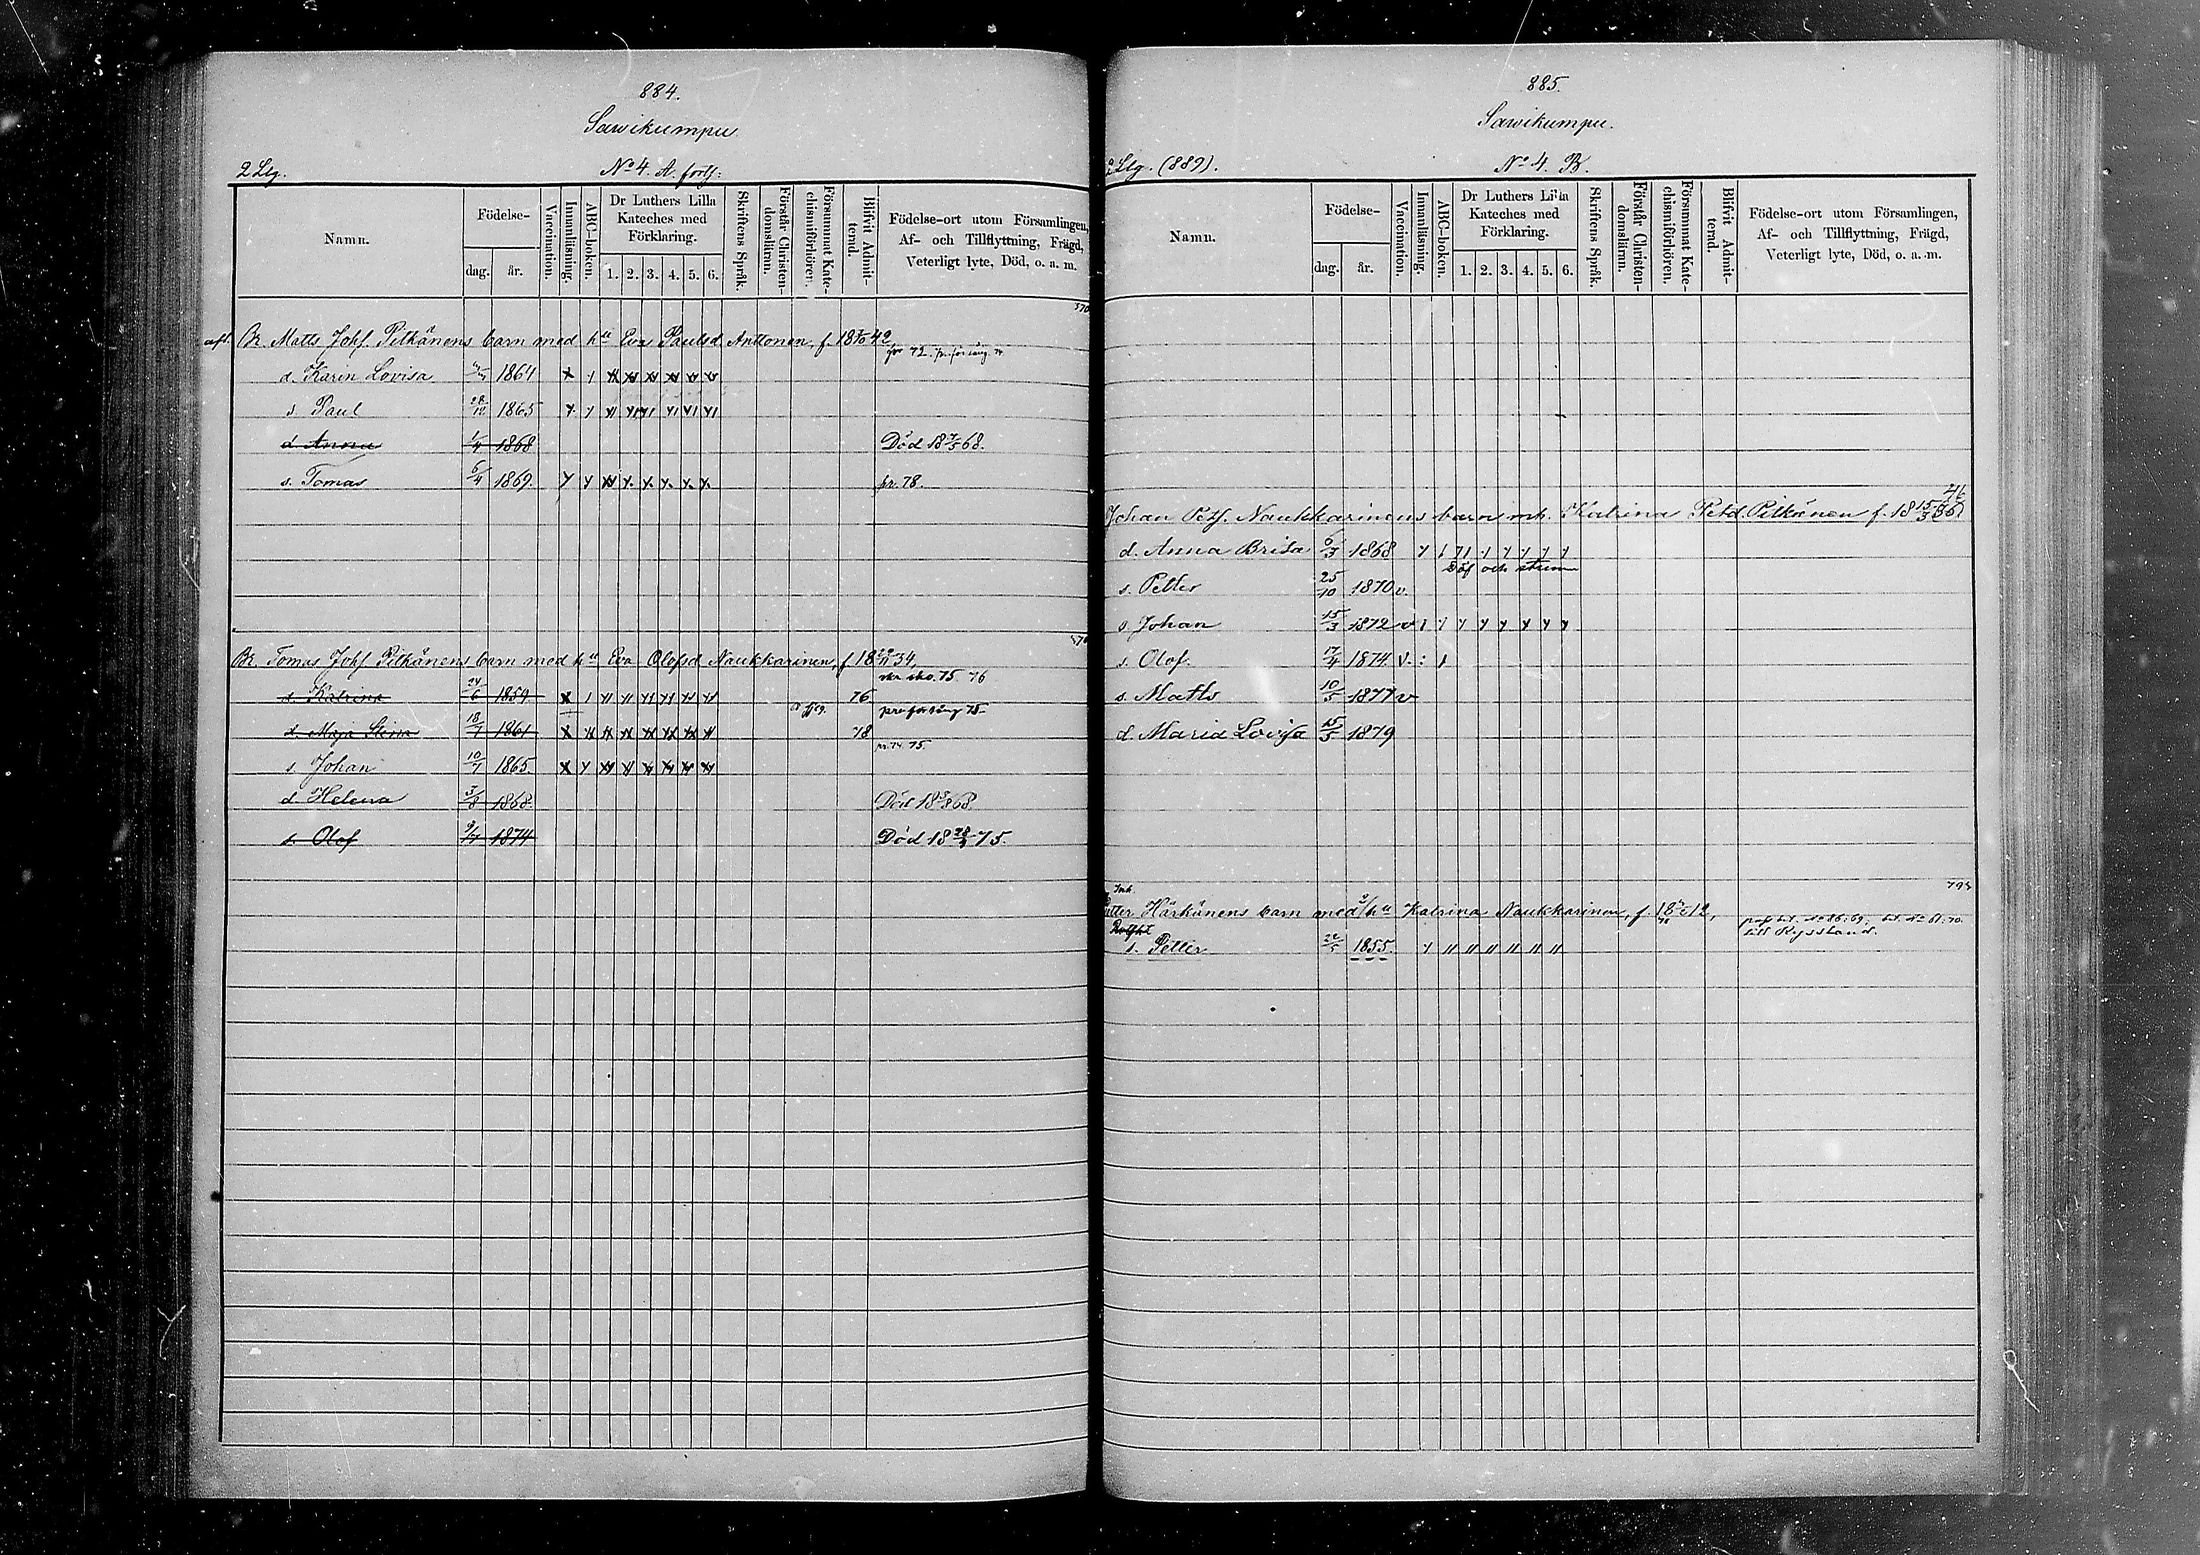 884.
Sawikumpu
2 Llg. No 4. A. forts:
Namn. Födelse- dag. år. Vaccination. Innanläsning. ABC-boken. Dr Luthers Lilla Kateches med Förklaring. 1. 2. 3. 4. 5. 6. Skriftens Språk. Förstår Christendomsläran. Försummat Katechismiförhören. Blifvit Admitterad. Födelse-ort utom Församlingen, Af- och Tillflyttning, Frägd, Veterligt lyte, Död, o. a. m.
Br. Matts Johs. Pitkänens barn med hu Eva Paulsd Anttonen, f. 18 42
d. Karin Lovisa 1864
s Paul 28/12 1865
d. Anna 1/4 1868 Död 18 7/5 68.
s. Tomas 6/4 1869. pr. 78.
Br. Tomas Johs Pitkänens barn med hu Eva Olofsd Naukkarinen, f 18 34,
75 76
d. Katrina 24/6 1859 76
d. Maja Stina 18/7 1861 78
pr. 74. 75.
s. Johan 10/7 1865.
d. Helena 3/8 1868. Död 18 68.
s. Olof 9/7 1874 Död 18 75.
885.
Sawikumpu.
Llg. (889). No 4. B.
Namn. Födelse- dag. år. Vaccination. Innanläsning. ABC-boken. Dr Luthers Lilla Kateches med Förklaring. 1. 2. 3. 4. 5. 6. Skriftens Språk. Förstår Christendomsläran. Försummat Katechismiförhören. Blifvit Admitterad. Födelse-ort utom Församlingen, Af- och Tillflyttning, Frägd, Veterligt lyte, Död, o. a. m.
46
Johan Pets. Naukkarinens barn mh. Katrina Petd. Pitkänen f. 18 15/3
d. Anna Brita 6/3 1868
Döf och stum
s. Petter 25/10 1870 v.
s. Johan 15/3 1872 v
s. Olof. 17/4 1874 v.
s. Matts 10/5 1877 v
d. Maria Lovisa 15/5 1879
Inh.
Petter Härkönens barn med hu Katrina Naukkarinen, f. 18 12,
till Ryssland.
s. Petter 22/5 1855.